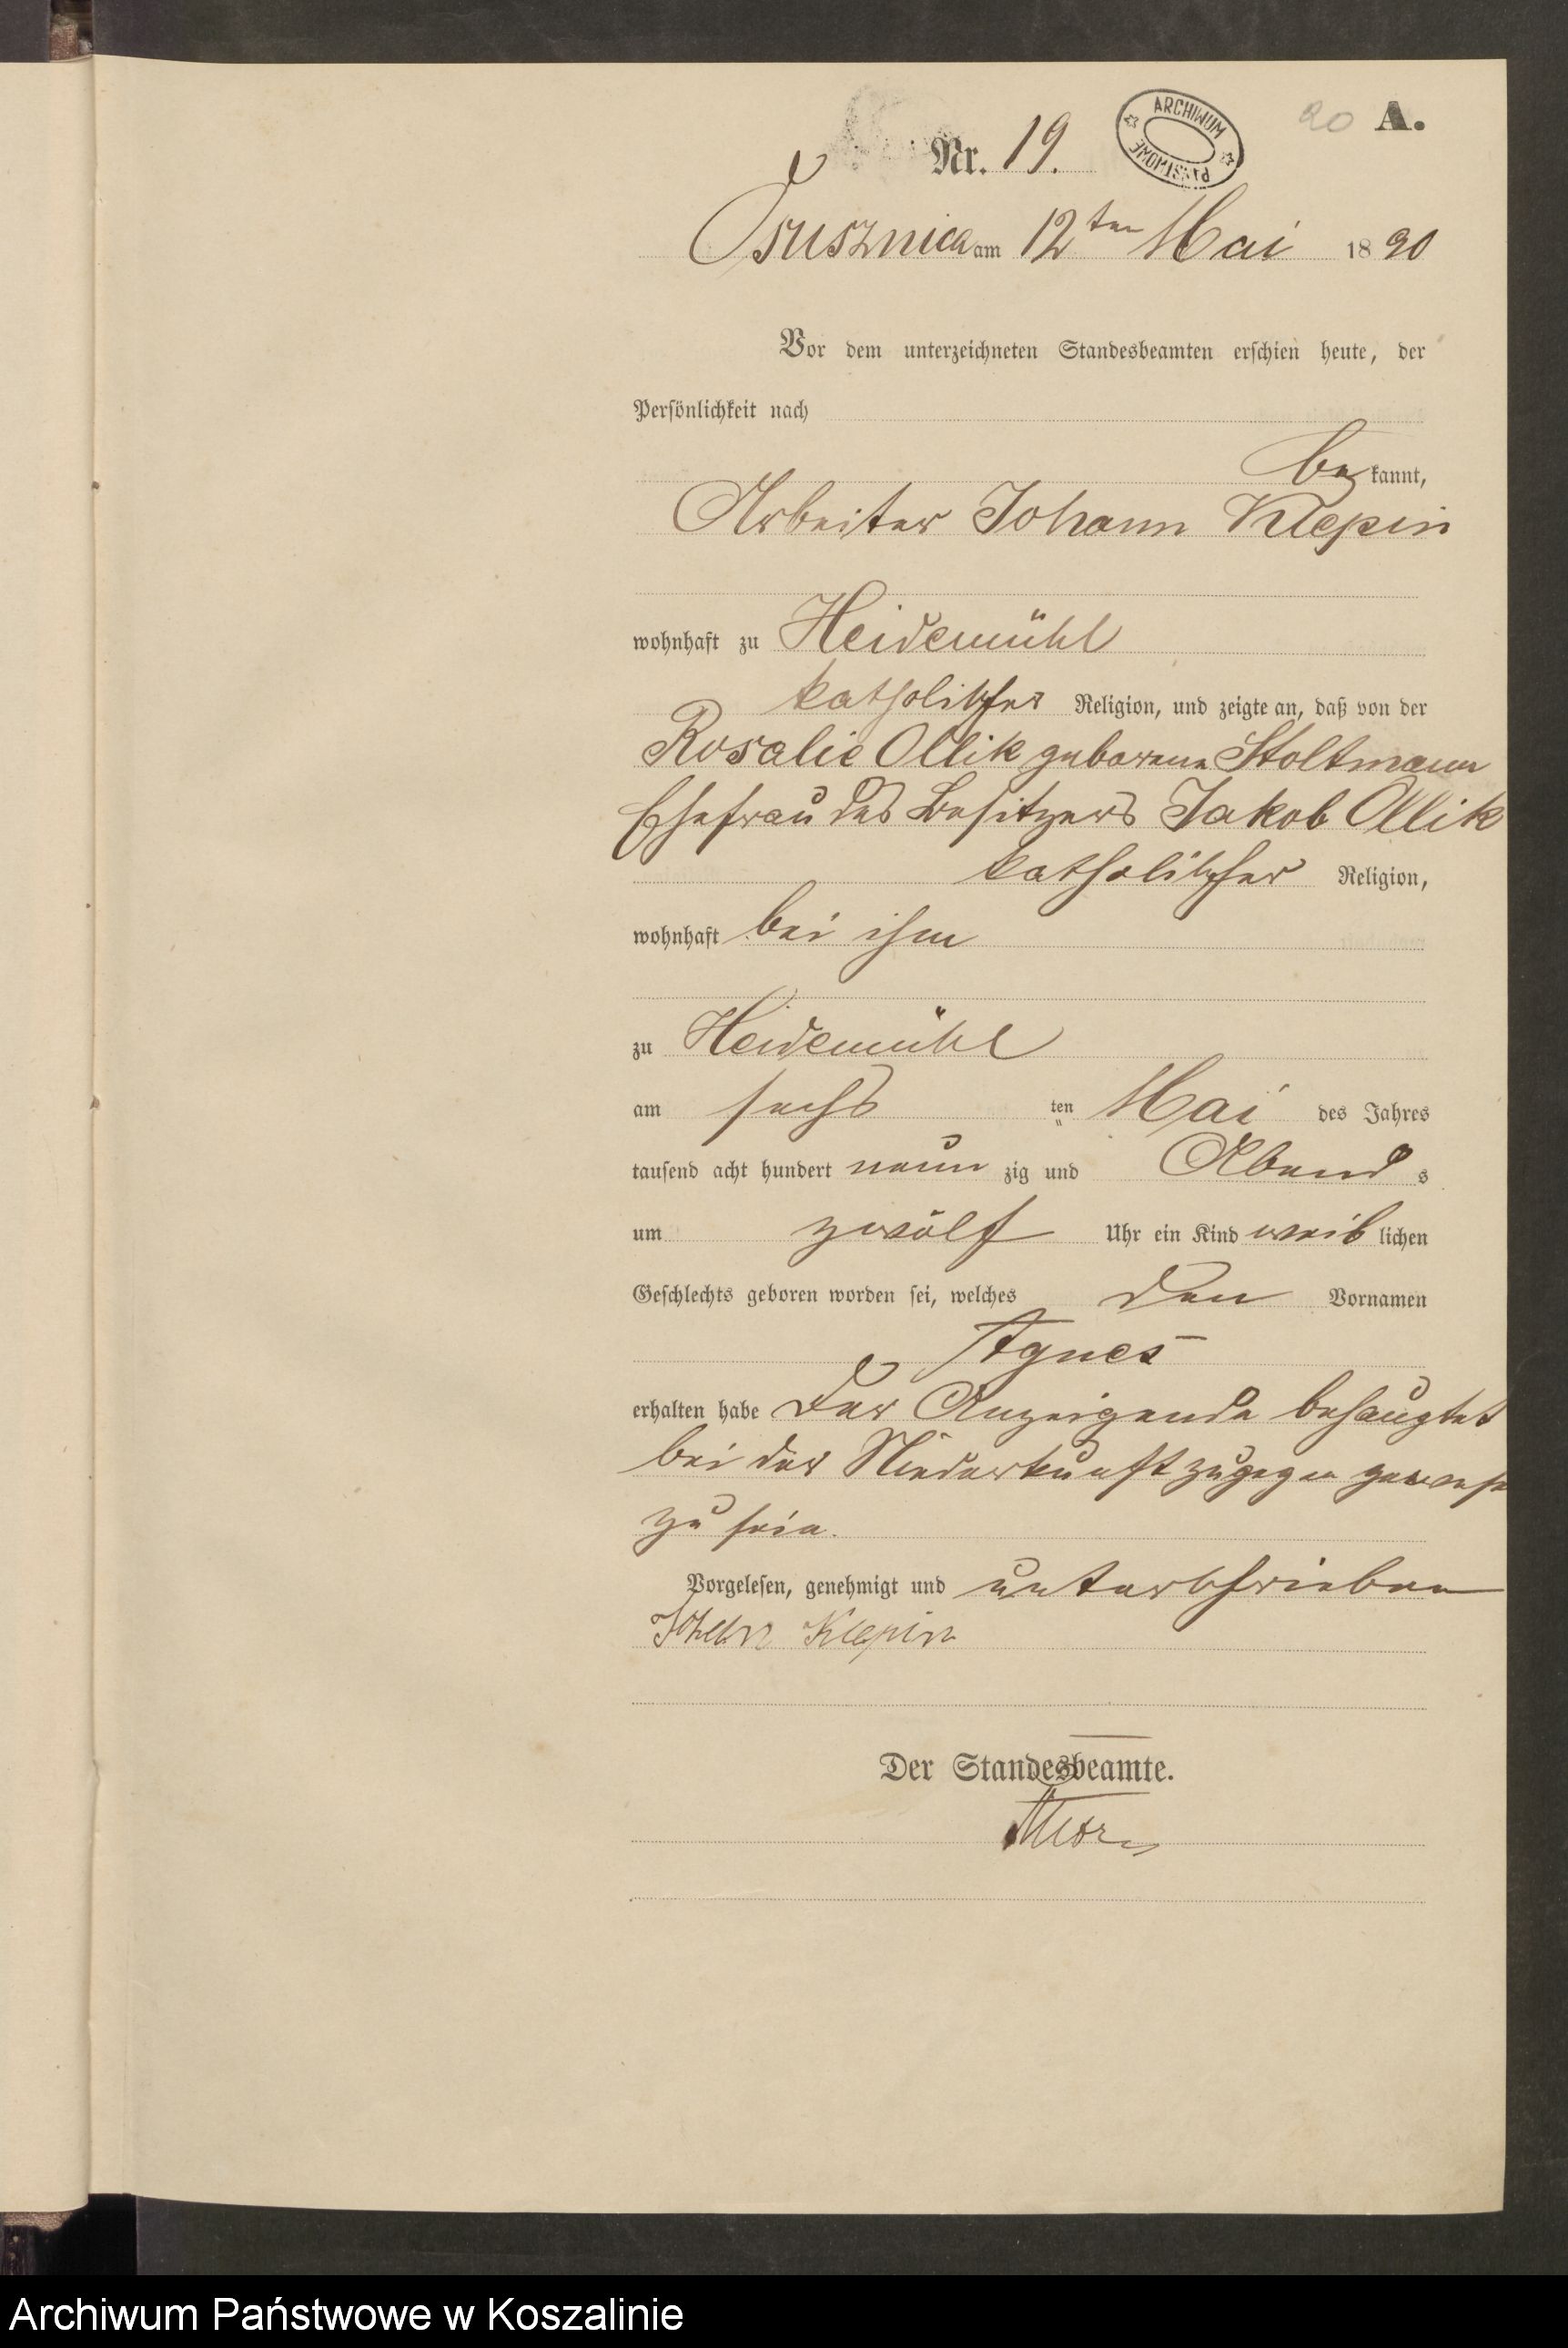 20 A.
Nr. 19.
ARCHIWUM PAŃSTWOWE
Osusznica am 12ten Mai 1890
Vor dem unterzeichneten Standesbeamten erschien heute, der
Persönlichkeit nach
bekannt,
Arbeiter Johann Klepin
wohnhaft zu Heidemühl
katholischer Religion, und zeigte an, daß von der
Rosalie Ollik geborene Stoltmann
Ehefrau des Besitzers Jakob Ollik
katholischer Religion,
wohnhaft bei ihm
zu Heidemühl
am sechsten Mai des Jahres
tausend acht hundert neunzig und Abends
um zwölf Uhr ein Kind weiblichen
Geschlechts geboren worden sei, welches den Vornamen
Agnes
erhalten habe Der Anzeigende behauptet
bei der Niederkunft zugegen gewesen
zu sein.
Vorgelesen, genehmigt und unterschrieben
Johann Klepin
Der Standesbeamte.
Archiwum Państwowe w Koszalinie